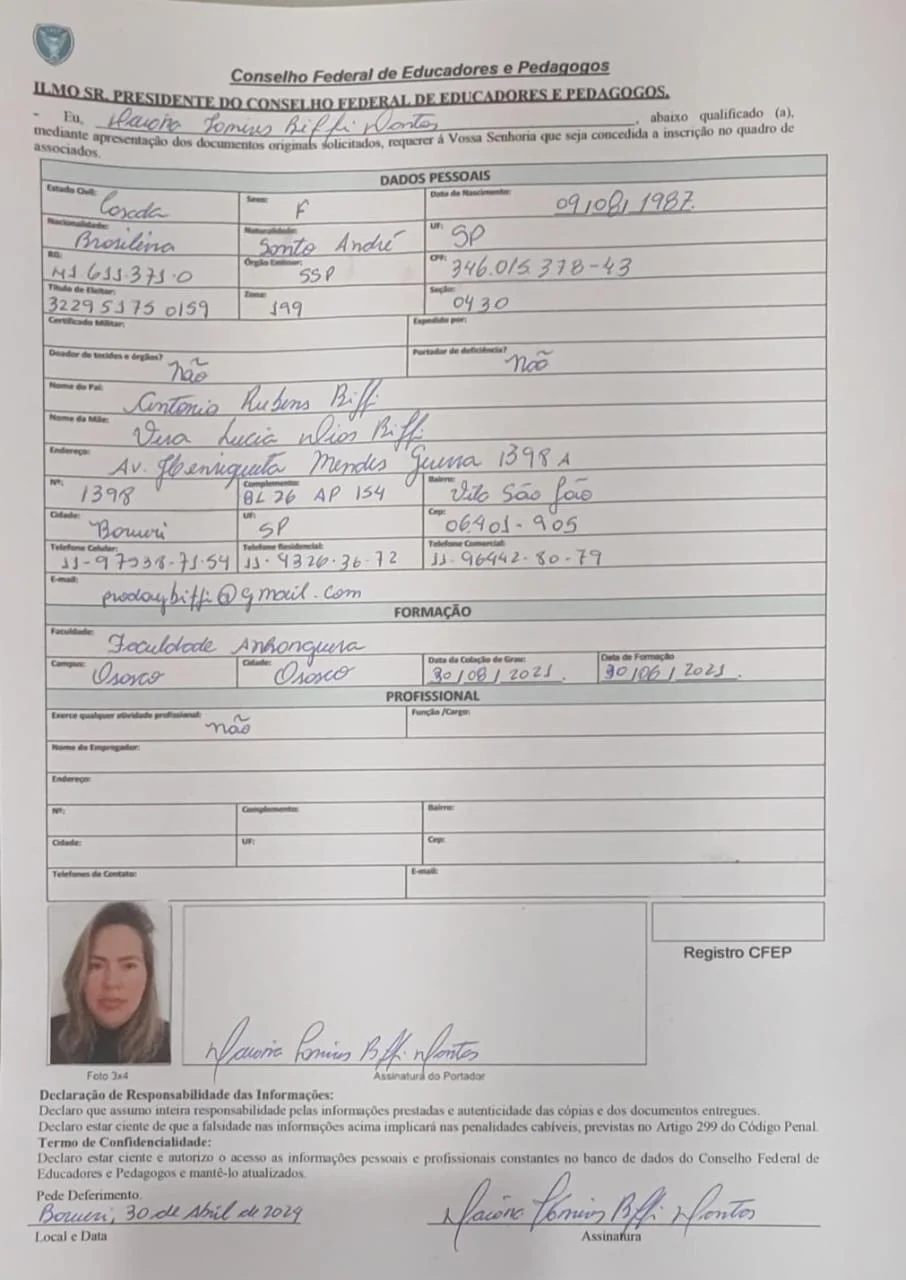 Conselho Federal de Educadores e Pedagogos
ILMO SR. PRESIDENTE DO CONSELHO FEDERAL DE EDUCADORES E PEDAGOGOS.
- Eu, Biffi, abaixo qualificado (a),
mediante apresentação dos documentos originais solicitados, requerer á Vossa Senhoria que seja concedida a inscrição no quadro de
associados.
DADOS PESSOAIS
Estado Civil: Casada Sexo: F Data de Nascimento: 09/08/1987
Nacionalidade: Brasileira Naturalidade: Santo André UF: SP
RG: 41.611.371.0 Órgão Emissor: SSP CPF: 346.015.378-43
Título de Eleitor: 3229 5175 0159 Zona: 199 Seção: 0430
Certificado Militar: Expedido por:
Doador de tecidos e órgãos? Não Portador de deficiência? Não
Nome do Pai: Antonio Rubens Biffi
Nome da Mãe: Vera Lucia Dias Biffi
Endereço: Av. Henriqueta Mendes Guerra 1398 A
Nº: 1398 Complemento: BL 26 AP 154 Bairro: Vila São João
Cidade: Barueri UF: SP Cep: 06401-905
Telefone Celular: 11-97338-71.54 Telefone Residencial: 11-4326-36-72 Telefone Comercial: 11-96442-80-79
E-mail: @gmail.com
FORMAÇÃO
Faculdade: Faculdade Anhanguera
Campus: Osasco Cidade: Osasco Data da Colação de Grau: 30/08/2021. Data de Formação 30/06/2021.
PROFISSIONAL
Exerce qualquer atividade profissional: não Função /Cargo:
Nome do Empregador:
Endereço:
Nº: Complemento: Bairro:
Cidade: UF: Cep:
Telefones de Contato: E-mail:
Registro CFEP
Biffi
Foto 3x4 Assinatura do Portador
Declaração de Responsabilidade das Informações:
Declaro que assumo inteira responsabilidade pelas informações prestadas e autenticidade das cópias e dos documentos entregues.
Declaro estar ciente de que a falsidade nas informações acima implicará nas penalidades cabíveis, previstas no Artigo 299 do Código Penal.
Termo de Confidencialidade:
Declaro estar ciente e autorizo o acesso as informações pessoais e profissionais constantes no banco de dados do Conselho Federal de
Educadores e Pedagogos e mantê-lo atualizados.
Pede Deferimento.
Barueri, 30 de Abril de 2024 Biffi
Local e Data Assinatura